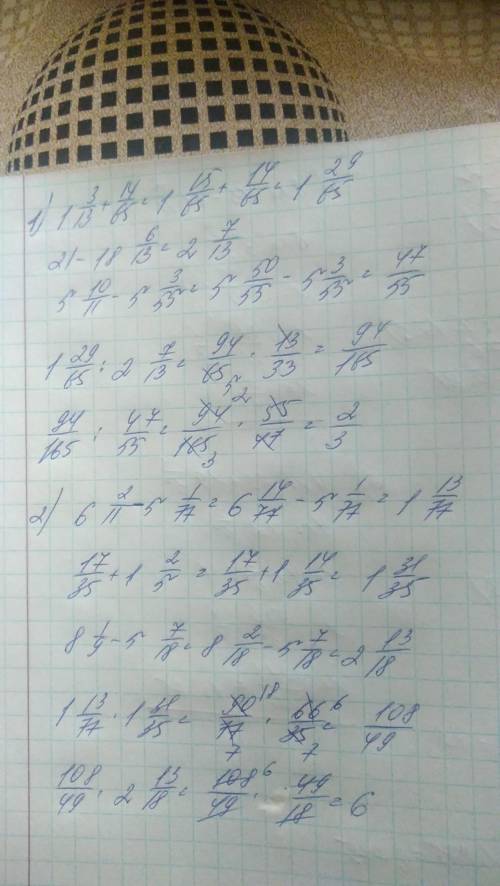 1) 1 3/13 + 14/65 = 1 15/65 + 14/65 = 1 29/65
21 - 18 6/13 = 2 7/13
5 10/11 - 5 3/55 = 5 50/55 - 5 3/55 = 47/55
1 29/65 : 2 7/13 = 94/65 5 · 13/33 = 94/165
94/165 : 47/55 = 94 2/165 3 · 55/47 = 2/3
2) 6 2/11 - 5 1/77 = 6 14/77 - 5 1/77 = 1 13/77
17/35 + 1 2/5 = 17/35 + 1 14/35 = 1 31/35
8 1/9 - 5 7/18 = 8 2/18 - 5 7/18 = 2 13/18
1 13/77 · 1 31/35 = 90 18/77 7 · 66 6/35 7 = 108/49
108/49 : 2 13/18 = 108 6/49 · 49/18 = 6